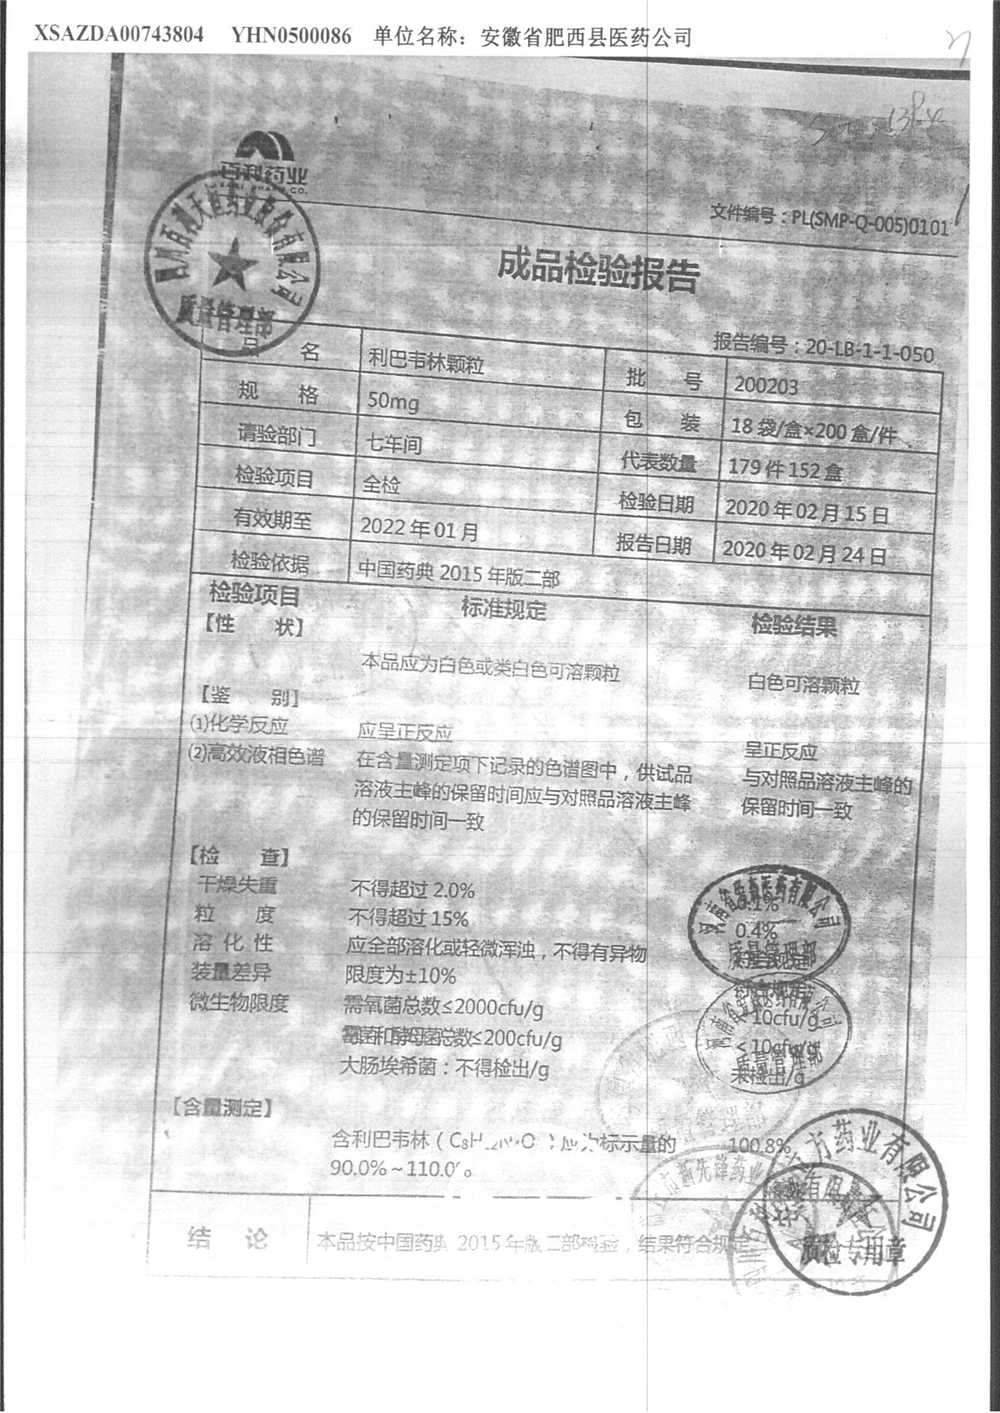 XSAZDA00743804 YHN0500086 单位名称：安徽省肥西县医药公司
百利药业
文件编号：PL(SMP-Q-005)0101
成品检验报告
质量管理部
报告编号：20-LB-1-1-050
品 名 利巴韦林颗粒 批 号 200203
规 格 50mg 包 装 18袋/盒×200盒/件
请验部门 七车间 代表数量 179件152盒
检验项目 全检 检验日期 2020年02月15日
有效期至 2022年01月 报告日期 2020年02月24日
检验依据 中国药典2015年版二部
检验项目 标准规定 检验结果
【性 状】
本品应为白色或类白色可溶颗粒 白色可溶颗粒
【鉴 别】
⑴化学反应 应呈正反应 呈正反应
⑵高效液相色谱 在含量测定项下记录的色谱图中，供试品 与对照品溶液主峰的
溶液主峰的保留时间应与对照品溶液主峰 保留时间一致
的保留时间一致
【检 查】
干燥失重 不得超过2.0% 0.1%
粒 度 不得超过15% 0.4%
溶 化 性 应全部溶化或轻微浑浊，不得有异物
装量差异 限度为±10% 符合规定
微生物限度 需氧菌总数≤2000cfu/g <10cfu/g
霉菌和酵母菌总数≤200cfu/g <10cfu/g
大肠埃希菌：不得检出/g 未检出/g
质量管理部
质量管理部
【含量测定】
含利巴韦林 应为标示量的 100.8%
90.0%~110.0%
药业有限公司
质检专用章
结 论 本品按中国药典2015年版二部检验，结果符合规定